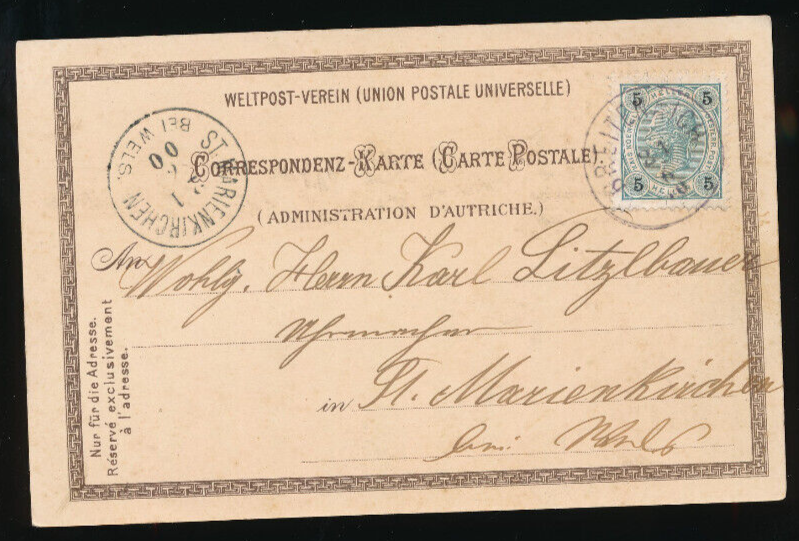 WELTPOST-VEREIN (UNION POSTALE UNIVERSELLE)
CORRESPONDENZ-KARTE (CARTE POSTALE).
(ADMINISTRATION D'AUTRICHE.)
ST. MARIENKIRCHEN
BEI WELS.
00
5 5
5 5
An Wohlg. Herrn Karl Litzlbauer
Uhrmacher
in St. Marienkirchen
bei Wels
Nur für die Adresse.
Réservé exclusivement
à l'adresse.